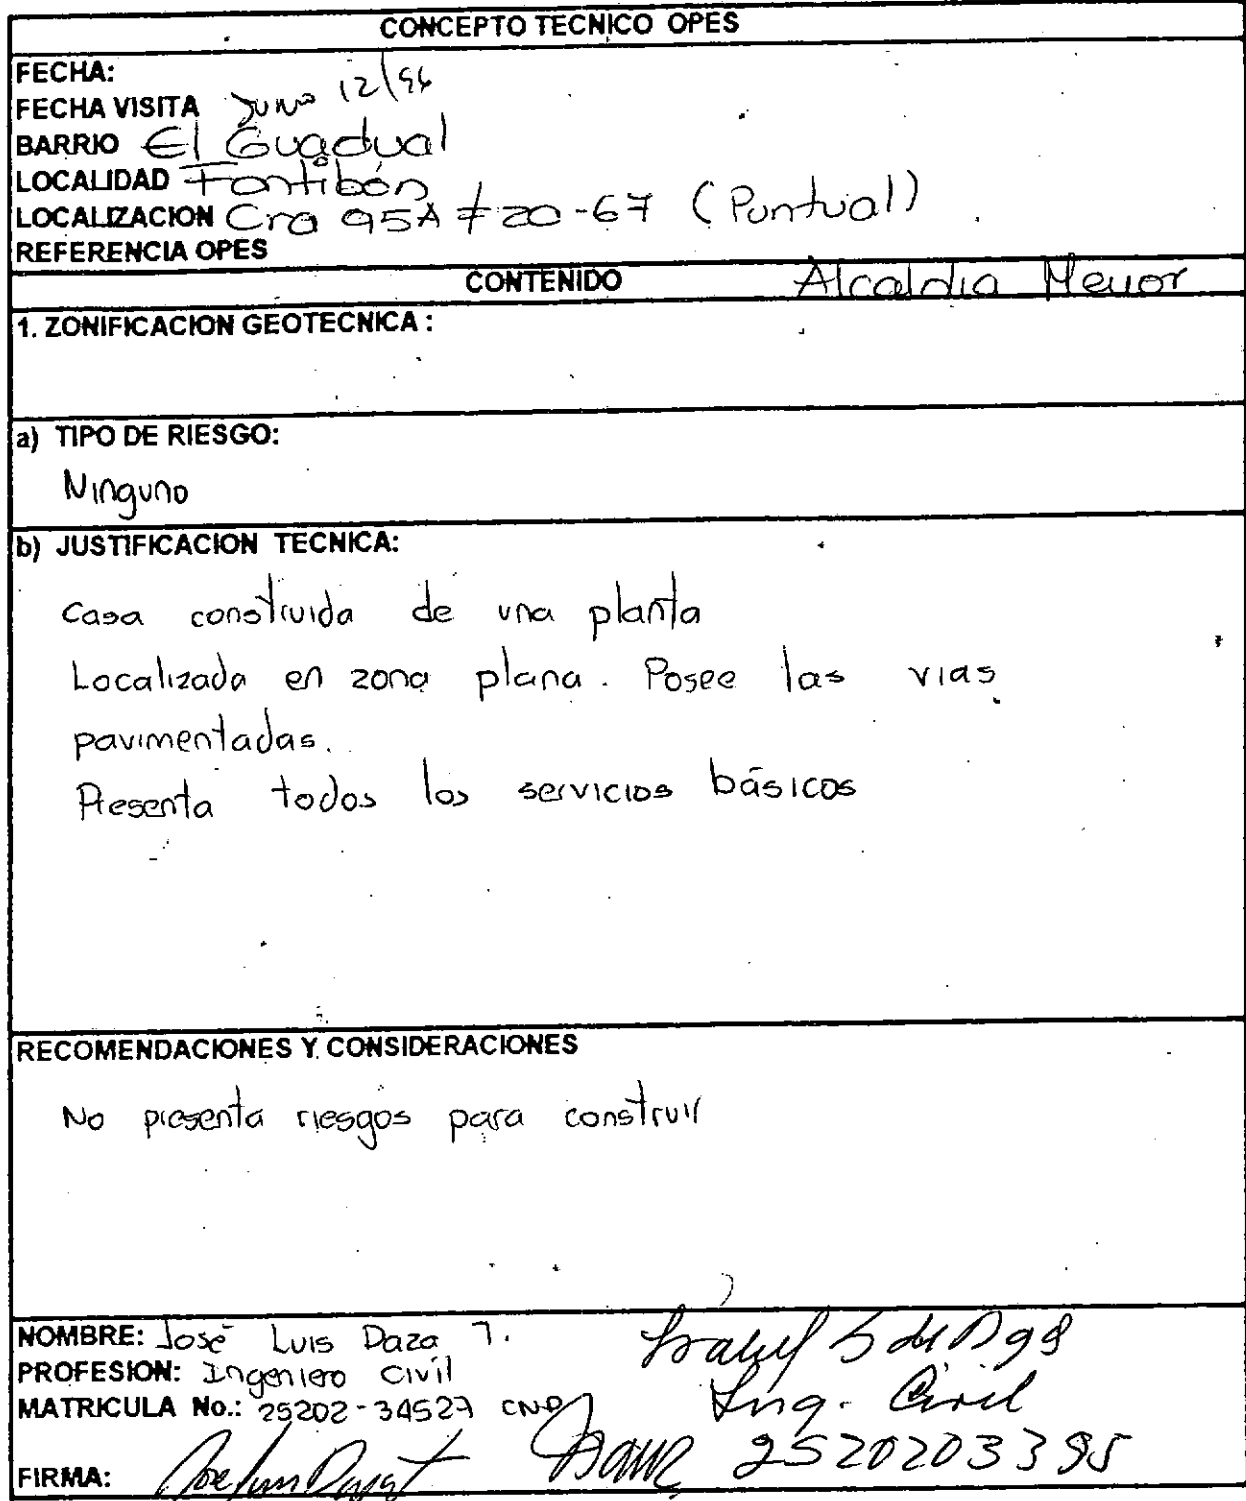 CONCEPTO TECNICO OPES
FECHA:
FECHA VISITA Junio 12/96
BARRIO El Guadual
LOCALIDAD Fontibón
LOCALIZACION Cra 95A # 20-67 (Puntual)
REFERENCIA OPES
CONTENIDO Alcaldia Menor
1. ZONIFICACION GEOTECNICA :
a) TIPO DE RIESGO:
Ninguno
b) JUSTIFICACION TECNICA:
Casa construida de una planta
Localizada en zona plana. Posee las vias
pavimentadas.
Presenta todos los servicios básicos
RECOMENDACIONES Y CONSIDERACIONES
No presenta riesgos para construir
NOMBRE: José Luis Daza T. Isabel S de
PROFESION: Ingeniero Civil Ing. Civil
MATRICULA No.: 25202-34527 CND 2520203395
FIRMA: